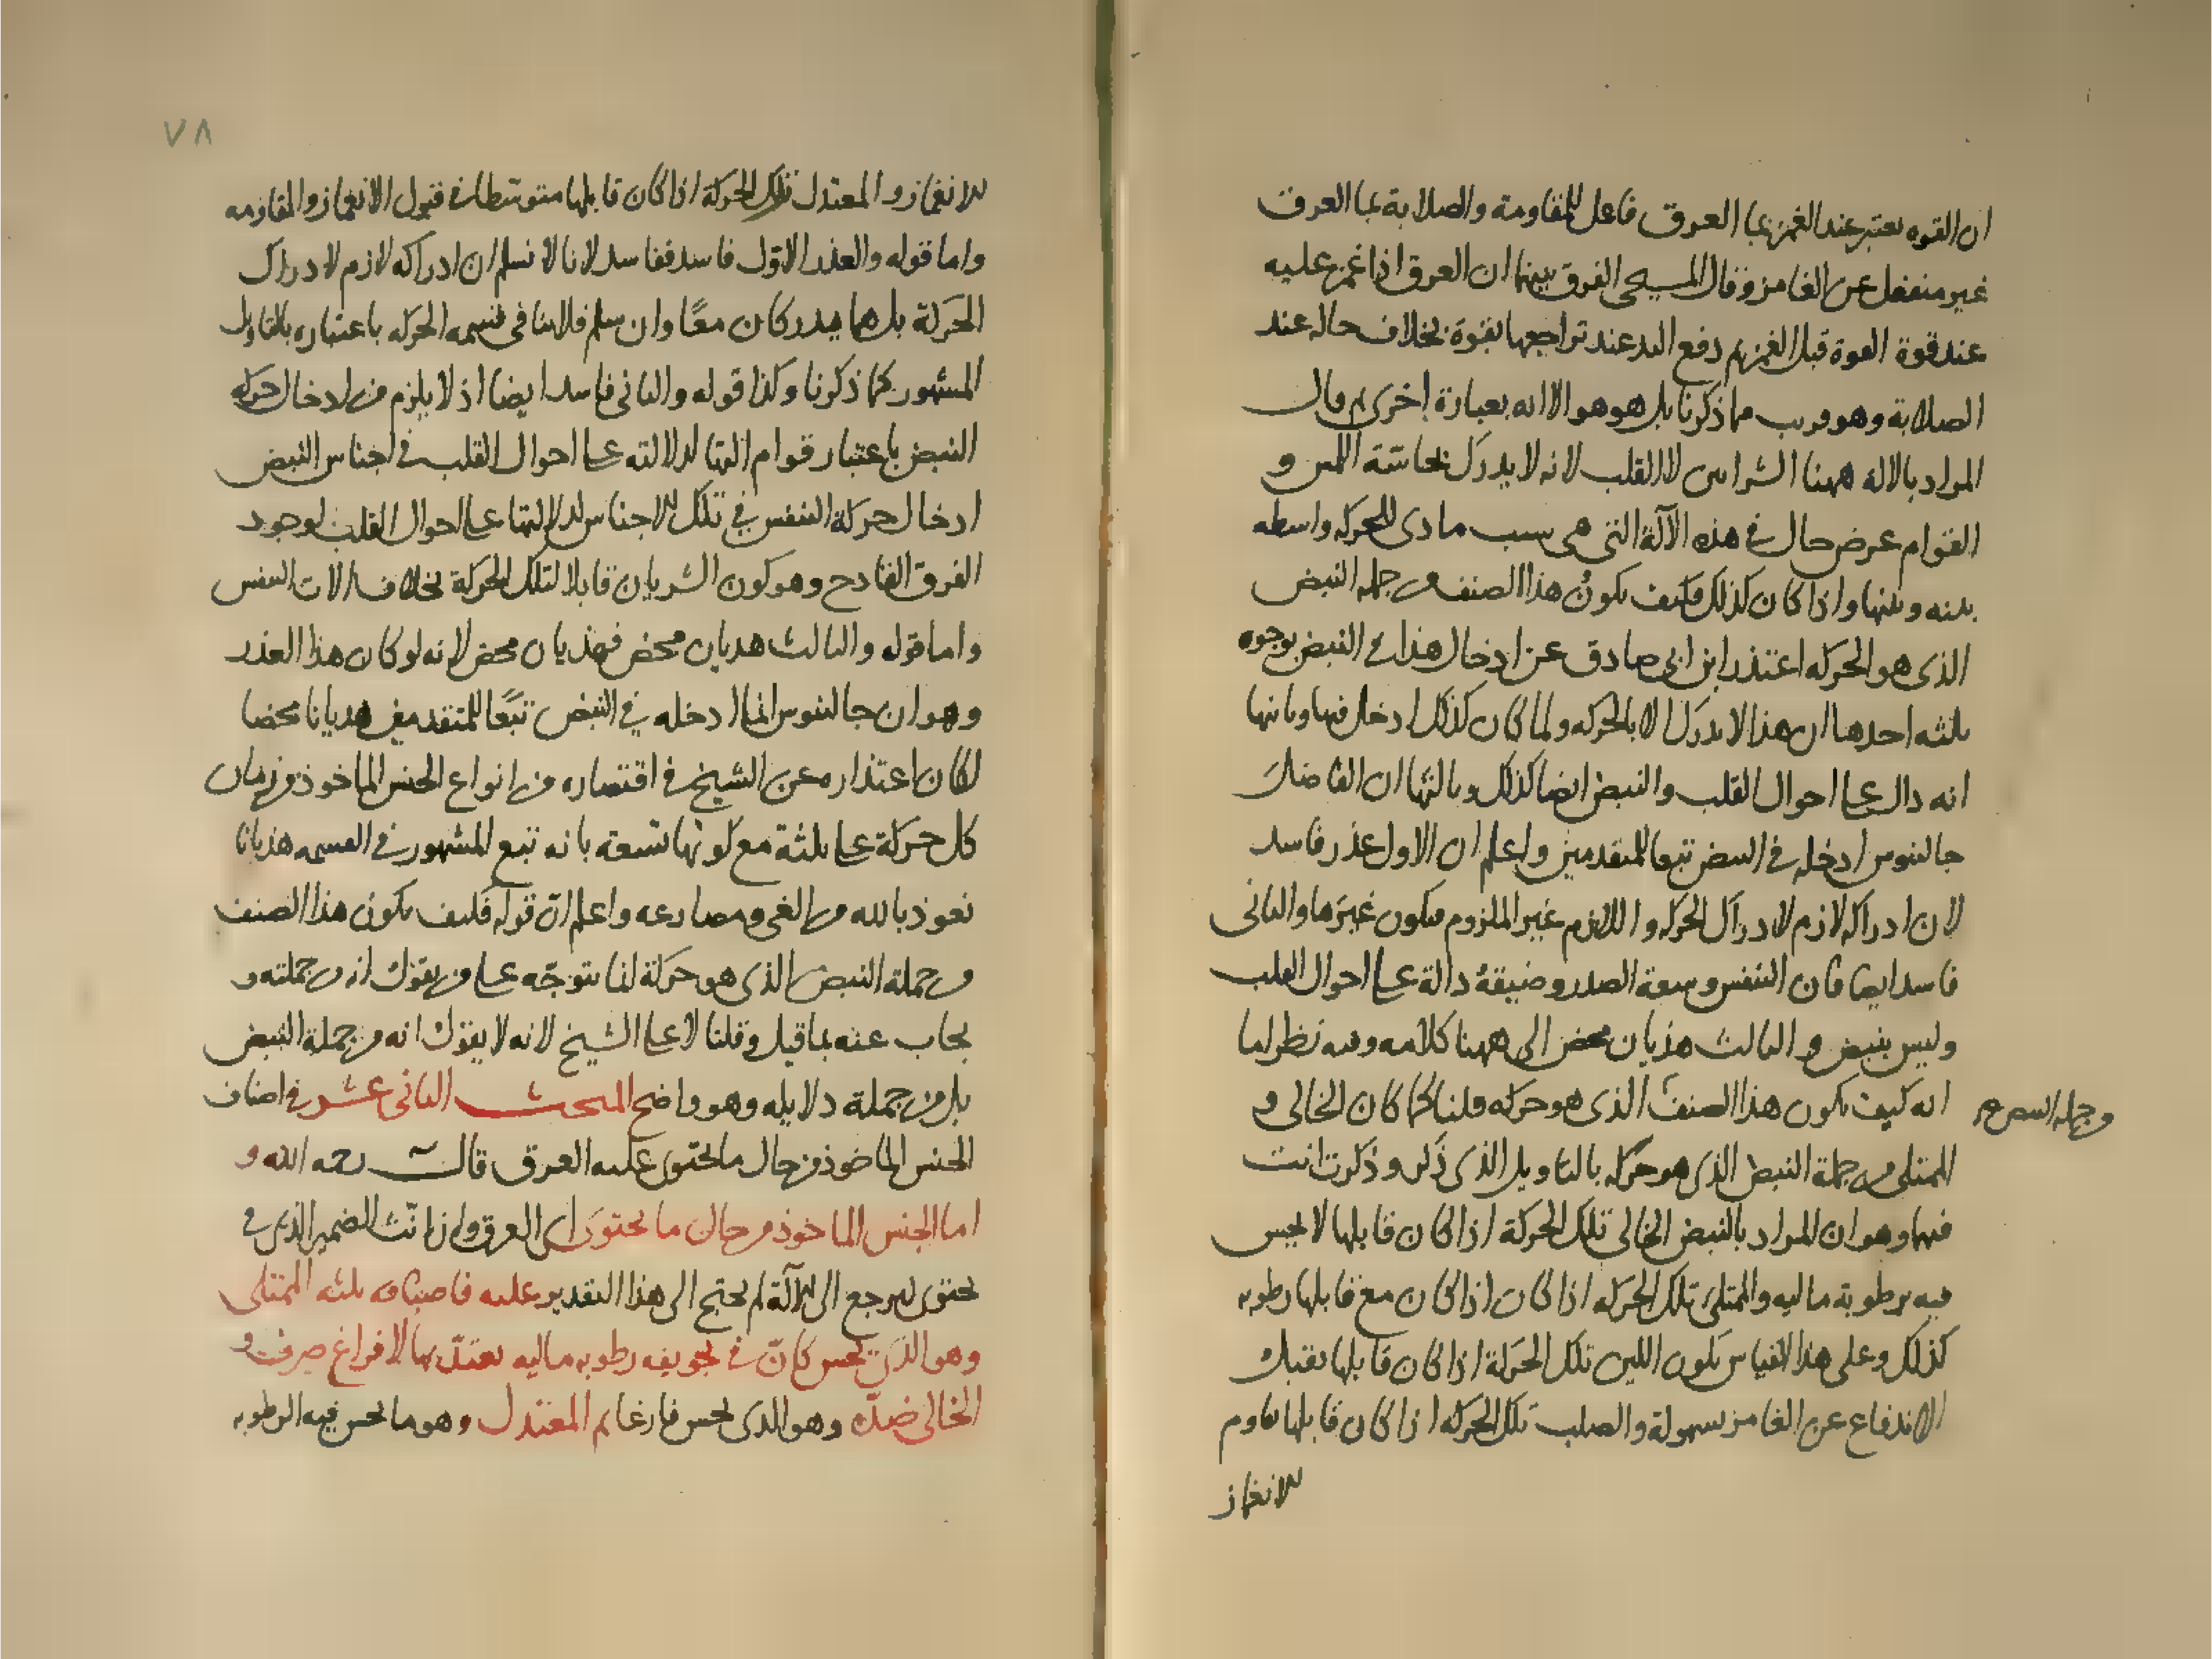 ان القوه يعتبر عند الغمز بما العرق فاعل للمقاومة والصلابة بما العرق
غير منفعل عن الغامز وقال المسيحى الفرق بينهما ان العرق اذا غمز عليه
عند قوة القوة قبل الغمز ثم دفع اليد عند تراجعها بقوة بخلاف حاله عند
الصلابة وهو قريب مما ذكرنا بل هو هو الا انه بعبارة اخرى ثم قال
المراد بالالة ههنا الشرايين لا القلب لانه لا يدرك بحاسة اللمس و
القوام عرض حال فى هذه الآلة التى هى سبب مادى للحركه واسطه
بينه وبينها واذا كان كذلك فكيف يكون هذا الصنف من جملة النبض
الذى هو الحركه اعتذر ابن ابى صادق عن ادخال هذا فى النبض بوجوه
ثلثه احدها ان هذا لا يدرك الا بالحركه ولما كان كذلك ادخل فيها وثانيها
انه دال على احوال القلب والنبض ايضا كذلك وثالثها ان الفاضل
جالينوس ادخله فى النبض تبعا للمتقدمين واعلم ان الاول عذر فاسد
لان ادراكه لازم لادراك الحركه واللازم غير الملزوم فيكون غيرها والثانى
فاسد ايضا فان التنفس وسعة الصدر وضيقه دالة على احوال القلب
وليس بنبض والثالث هذيان محض الى ههنا كلامه وفيه نظر لما
انه كيف يكون هذا الصنف الذى هو حركه قلنا كما كان الخالى و
من جملة النبض صح
الممتلى من جملة النبض الذى هو حركه بالتاويل الذى ذكر وذكرت انت
فيها وهو ان المراد بالنبض الخالى تلك الحركة اذا كان قابلها لا يحس
فيه برطوبة ماليه والممتلى تلك الحركه اذا كان اذا كان مع قابلها رطوبه
كذلك وعلى هذا القياس يكون اللين تلك الحركة اذا كان قابلها يقبل
الاندفاع عن الغامز بسهولة والصلب تلك الحركه اذا كان قابلها يقاوم
للانغماز
٧٨
للانغماز والمعتدل تلك الحركة اذا كان قابلها متوسطا فى قبول الانغماز والمقاومه
واما قوله والعذر الاول فاسد ففاسد لانا لا نسلم ان ادراكه لازم لادراك
الحركة بل هما يدركان معًا وان سلم فلا ينافى قسمه الحركه باعتباره بالتاويل
المشهور كما ذكرنا وكذا قوله والثانى فاسد ايضا اذ لا يلزم من ادخال حركه
النبض باعتبار قوام التها لدلالته على احوال القلب فى اجناس النبض
ادخال حركة التنفس فى تلك الاجناس لدلالتها على احوال القلب لوجود
الفرق القادح وهو كون الشريان قابلا لتلك الحركة بخلاف الات التنفس
واما قوله والثالث هديان محض فهذيان محض لانه لو كان هذا العذر
وهو ان جالينوس انما ادخله فى النبض تبعًا للمتقدمين هديانا محضا
لكان اعتذاره عن الشيخ فى اقتصاره من انواع الجنس الماخوذ من زمان
كل حركة على ثلثة مع كونها تسعة بانه تبع المشهور فى القسمه هذيانا
نعوذ بالله من الغى ومصارعه واعلم ان قوله فكيف يكون هذا الصنف
من جملة النبض الذى هو حركة انما يتوجّه على من يقول انه من جملته و
يجاب عنه بما قيل وقلنا لا على الشيخ لانه لا يقول انه من جملة النبض
بل من جملة دلايله وهو واضح المبحث الثانى عشر فى اصناف
الجنس الماخوذ من حال ما يحتوى عليه العرق قال رحمه الله و
اما الجنس الماخوذ من حال ما يحتوى اى العرق وان انّث الضمير الذى فى
يحتوى ليرجع الى الآلة لم يحتج الى هذا التقدير عليه فاصنافه ثلثه الممتلى
وهو الذى يحس كانّ فى تجويفه رطوبه ماليه يعتدّ بها لا فراغ صرف و
الخالى ضدّه وهو الذى يحس فارغا ثم المعتدل وهو ما يحس فيه الرطوبه